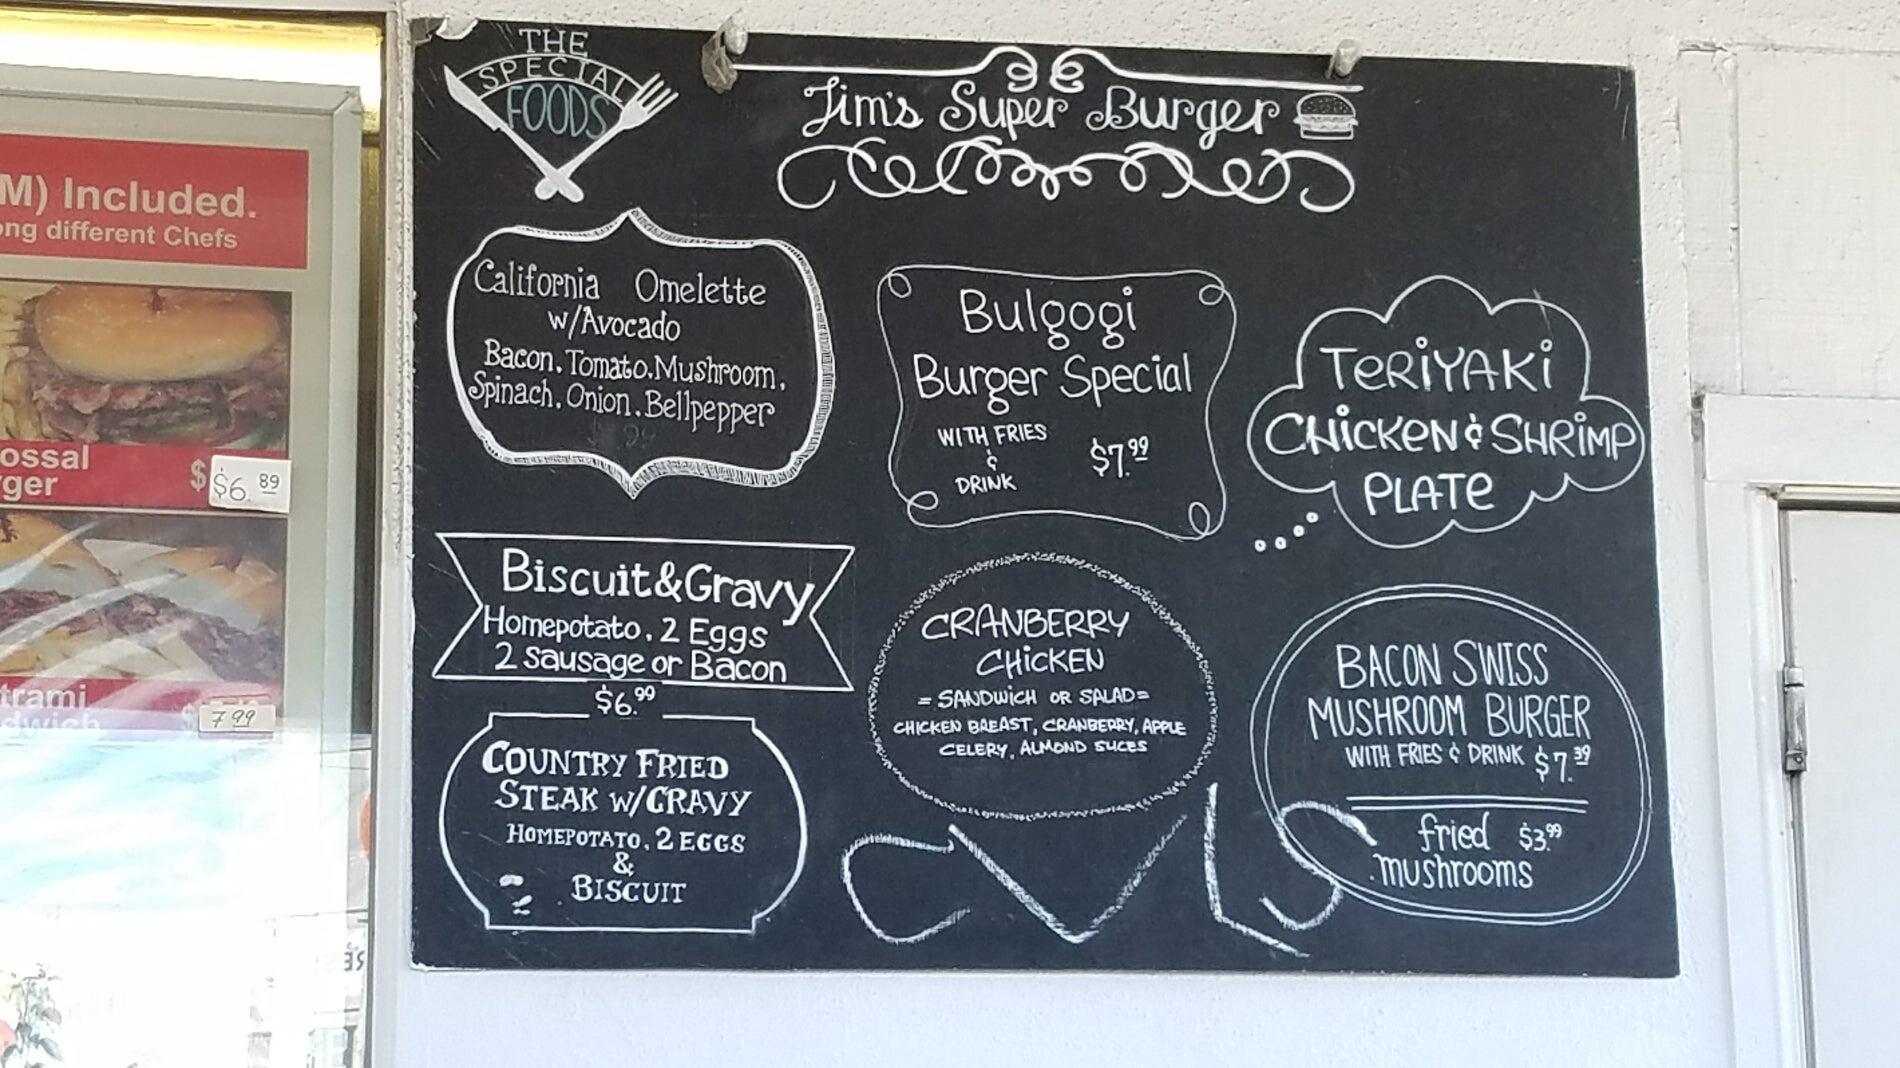 THE
SPECIAL
FOODS
Jim's Super Burger
California Omelette
w/Avocado
Bacon, Tomato, Mushroom,
Spinach, Onion, Bellpepper
Bulgogi
Burger Special
WITH FRIES
&
DRINK
$7.99
TeRiYAKi
CHiCKeN & SHRiMP
PLATe
Biscuit&Gravy
Homepotato, 2 Eggs
2 Sausage or Bacon
$6.99
CRANBERRY
CHiCKEN
= SANDWiCH OR SALAD=
CHICKEN BREAST, CRANBERRY, APPLE
CELERY, ALMOND SLICES
BACON SWISS
MUSHROOM BURGER
WITH FRIES & DRINK $7.39
fried $3.99
mushrooms
COUNTRY FRIED
STEAK W/GRAVY
HOMEPOTATO, 2 EGGS
&
BISCUIT
M) Included.
ong different Chefs
ossal
ger
$ $6.89
trami
dwich
7.99